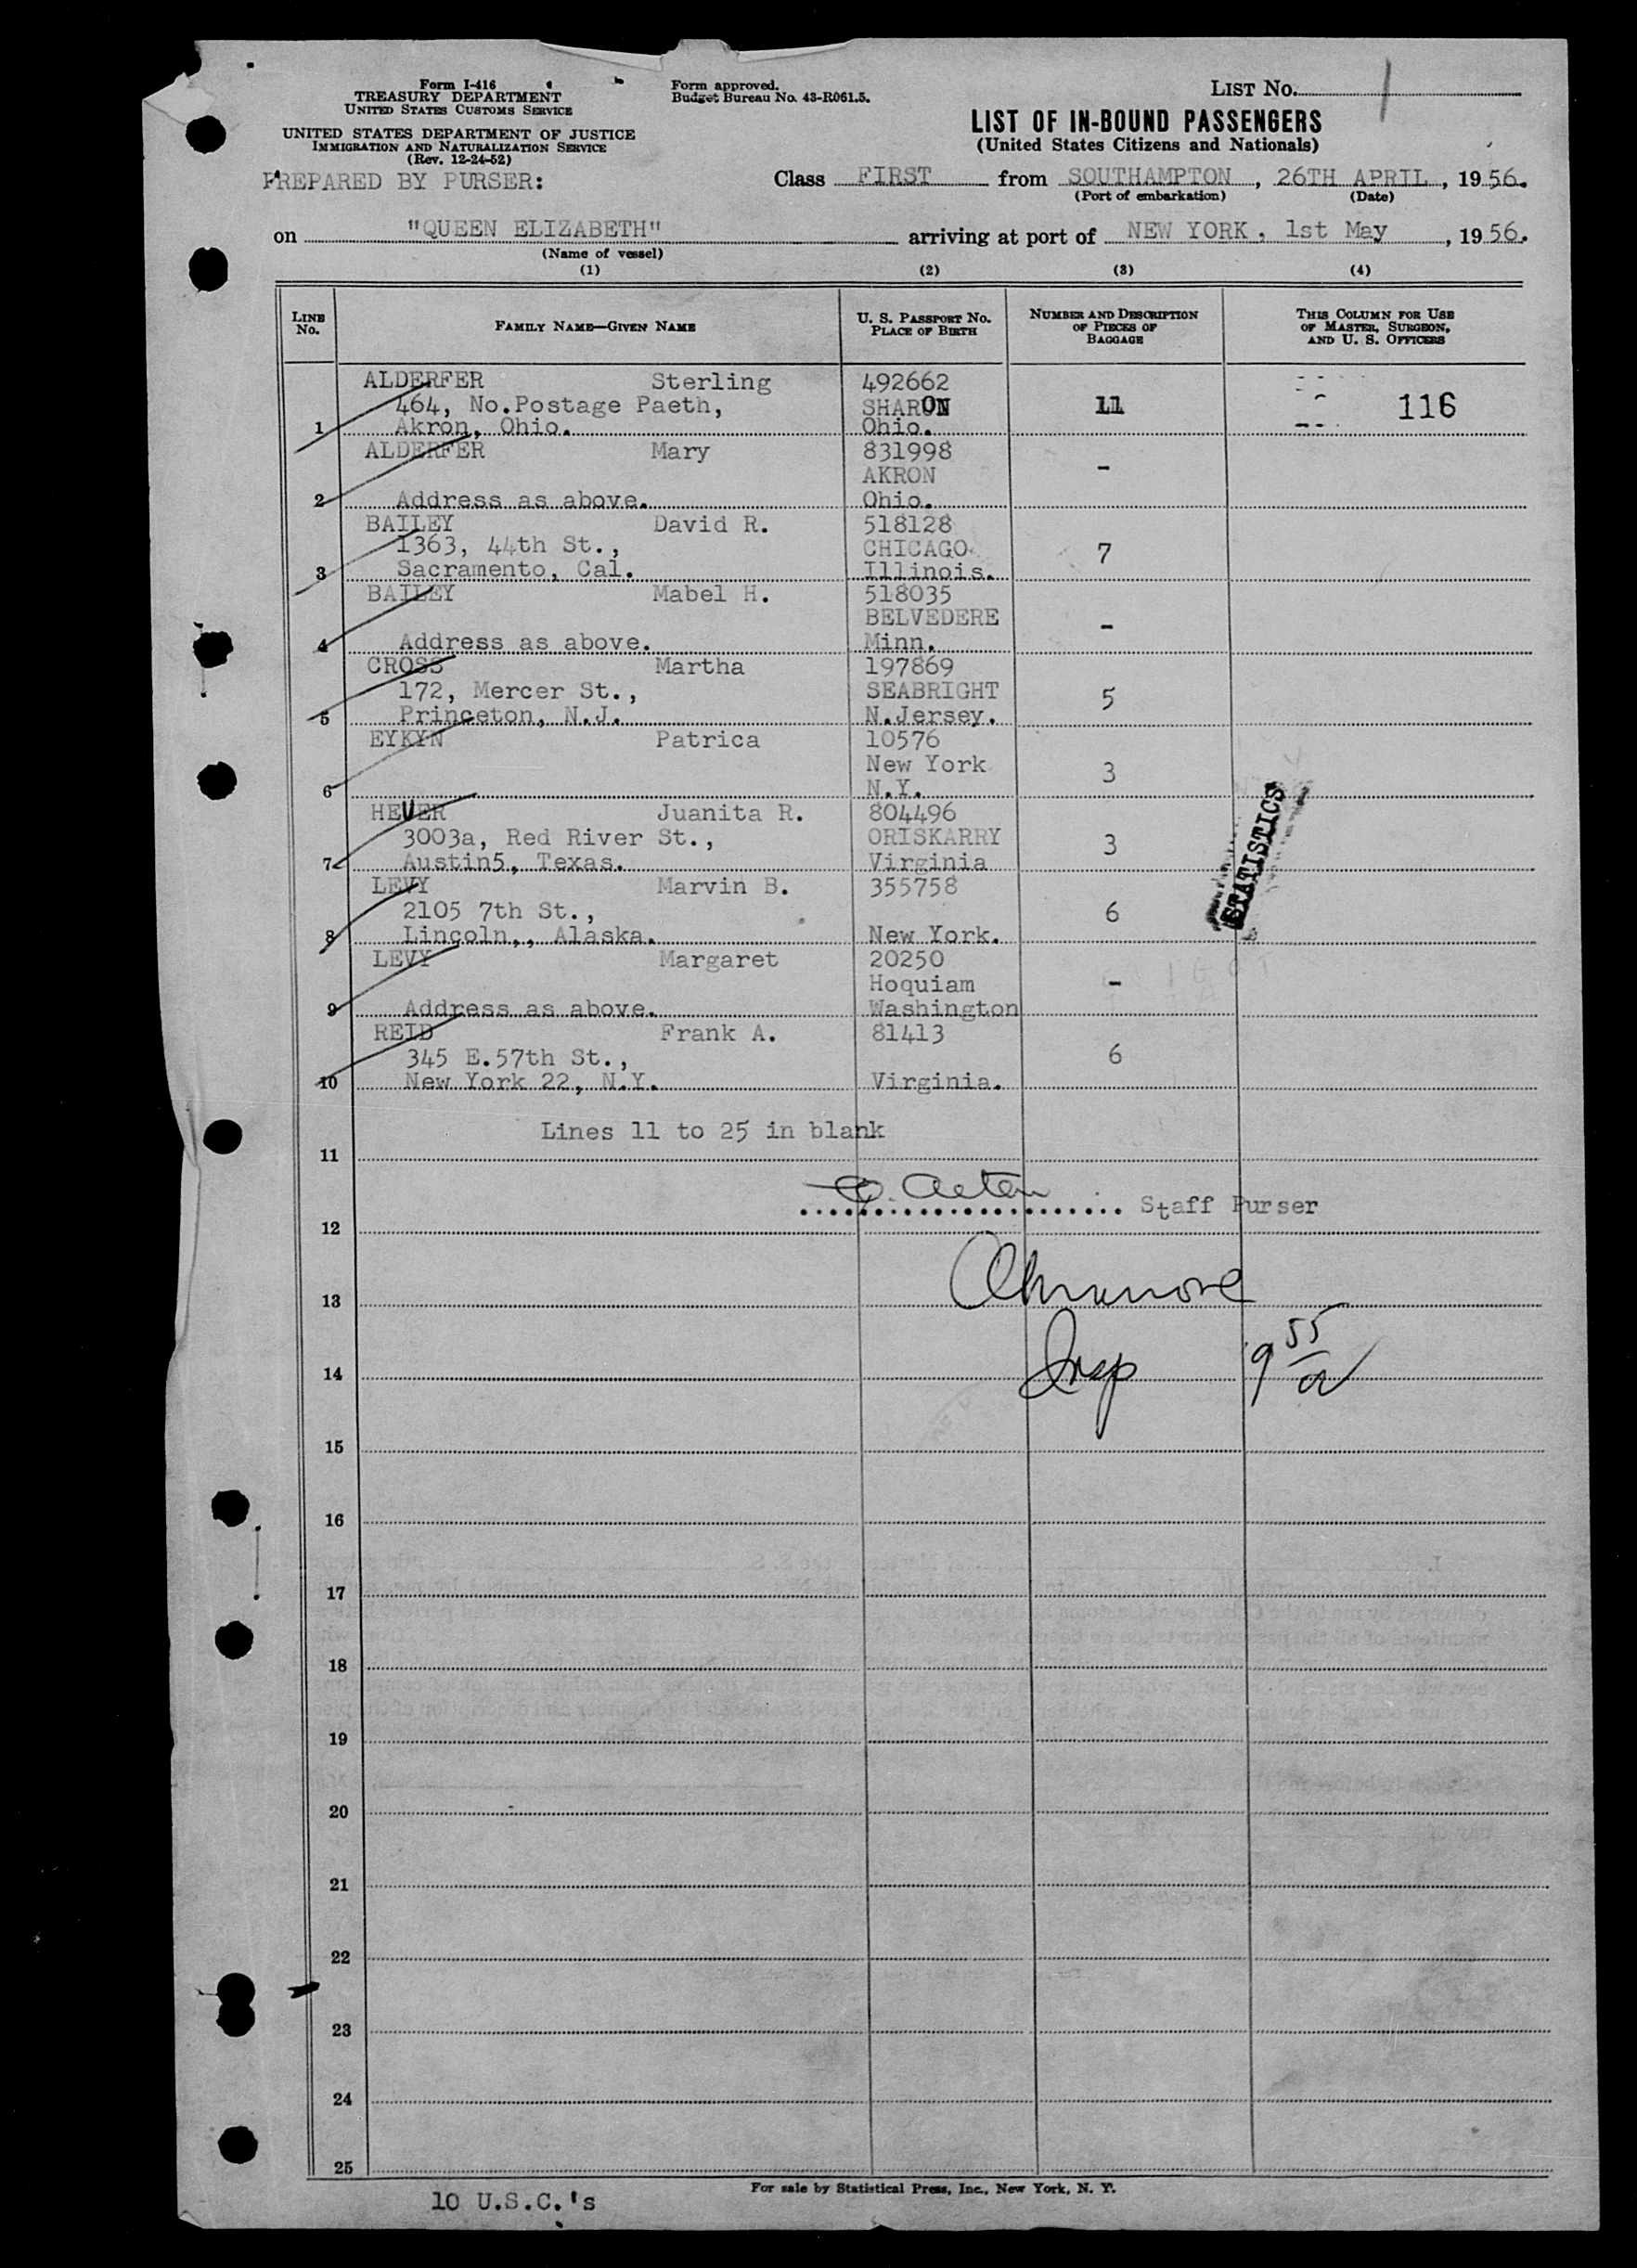 Form I-416
TREASURY DEPARTMENT
UNITED STATES CUSTOMS SERVICE
UNITED STATES DEPARTMENT OF JUSTICE
IMMIGRATION AND NATURALIZATION SERVICE
(Rev. 12-24-52)
PREPARED BY PURSER:
Form approved.
Budget Bureau No. 43-R061.5.
LIST No. 1
LIST OF IN-BOUND PASSENGERS
(United States Citizens and Nationals)
Class FIRST from SOUTHAMPTON, 26TH APRIL, 1956.
(Port of embarkation) (Date)
on "QUEEN ELIZABETH" arriving at port of NEW YORK, 1st May, 1956.
(Name of vessel)
(1) (2) (3) (4)
LINE No. FAMILY NAME—GIVEN NAME U. S. PASSPORT No. PLACE OF BIRTH NUMBER AND DESCRIPTION OF PIECES OF BAGGAGE THIS COLUMN FOR USE OF MASTER, SURGEON, AND U. S. OFFICERS
ALDERFER Sterling 492662
464, No.Postage Paeth, SHARON 11 116
1 Akron, Ohio. Ohio.
ALDERFER Mary 831998
AKRON -
2 Address as above. Ohio.
BAILEY David R. 518128
1363, 44th St., CHICAGO 7
3 Sacramento, Cal. Illinois.
BAILEY Mabel H. 518035
BELVEDERE -
4 Address as above. Minn.
CROSS Martha 197869
172, Mercer St., SEABRIGHT 5
5 Princeton, N.J. N.Jersey.
EYKYN Patrica 10576
New York 3
6 N.Y.
HEUER Juanita R. 804496
3003a, Red River St., ORISKARRY 3
7 Austin5, Texas. Virginia
LEVY Marvin B. 355758
2105 7th St., 6
8 Lincoln,, Alaska. New York.
STATISTICS
LEVY Margaret 20250
Hoquiam -
9 Address as above. Washington
REID Frank A. 81413
345 E.57th St., 6
10 New York 22, N.Y. Virginia.
Lines 11 to 25 in blank
11
Staff Purser
12
13
Insp 9 55
14
15
16
17
18
19
20
21
22
23
24
25
For sale by Statistical Press, Inc., New York, N. Y.
10 U.S.C.'s